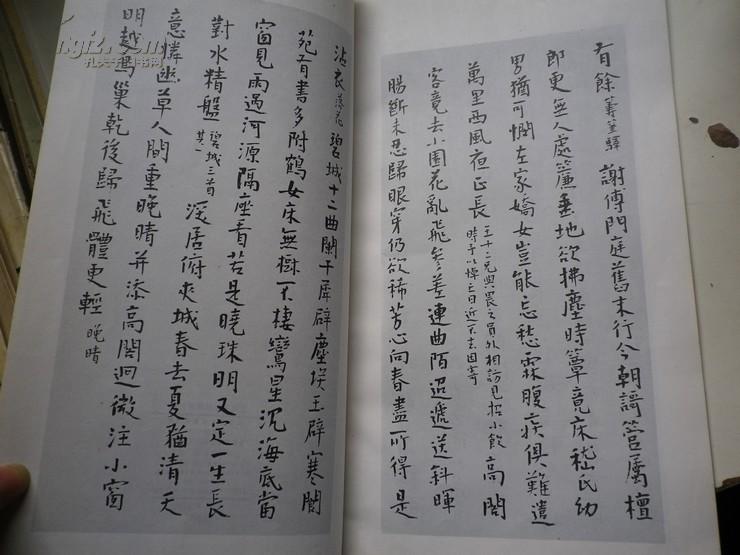 有餘 籌筆驛 謝傅門庭舊末行今朝歌管屬檀
郎更無人處簾垂地欲拂塵時簟竟床嵇氏幼
男猶可憫左家嬌女豈能忘愁霖腹疾俱難遣
萬里西風夜正長 王十二兄與畏之員外相訪見招小飲時予以悼亡日近不去因寄 高閣
客竟去小園花亂飛參差連曲陌迢遞送斜暉
腸斷未忍歸眼穿仍欲稀芳心向春盡所得是
沾衣 落花 碧城十二曲闌干犀辟塵埃玉辟寒閬
苑有書多附鶴女床無樹不棲鸞星沉海底當
窗見雨過河源隔座看若是曉珠明又定一生長
對水精盤 碧城三首其一 深居俯夾城春去夏猶清天
意憐幽草人間重晚晴并添高閣迥微注小窗
明越鳥巢乾後歸飛體更輕 晚晴